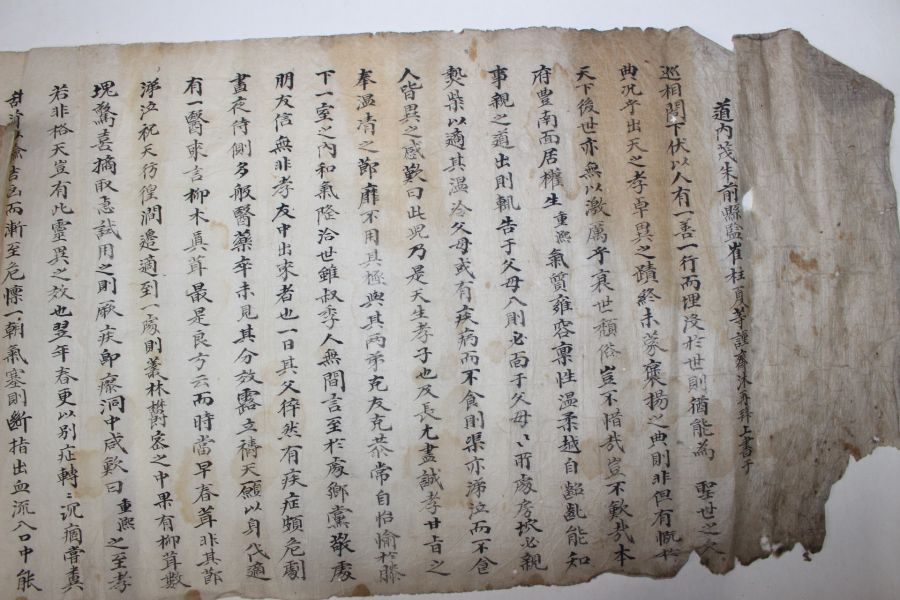 道內茂朱前縣監崔柱夏等謹齋沐再拜上書于
巡相閤下伏以人有一善一行而埋沒於世則猶能為 聖世之欠
典况乎出天之孝卓異之蹟終未蒙褒揚之典則非但有慨於
天下後世亦無以激厲乎衰世頹俗豈不惜哉豈不歎哉本
府豊南面居權生重熙氣質雍容禀性溫柔越自齠齔能知
事親之道出則輒告于父母入則必面于父母〻所處房埃必親
爇柴以適其温冷父母或有疾病而不食則渠亦涕泣而不食
人皆異之感歎曰此児乃是天生孝子也及長尤盡誠孝甘旨之
奉温凊之節靡不用其極與其两弟克友克恭常自怡愉於膝
下一室之內和氣隆洽世雖叔季人無間言至於處鄉黨敬處
朋友信無非孝友中出來者也一日其父猝然有疾症頗危劇
晝夜侍側多般醫藥卒未見其分效露立禱天願以身代適
有一醫來言柳木眞茸最是良方云而時當早春茸非其節
涕泣祝天彷徨澗邉適到一處則叢林欝密之中果有柳茸數
塊驚喜摘取急試用之則厥疾卽瘳洞中咸歎曰重熙之至孝
若非格天豈有此靈異之效也翌年春更以别症轉〻沉痼嘗糞
而漸至危懍一朝氣塞則斷指出血流入口中能